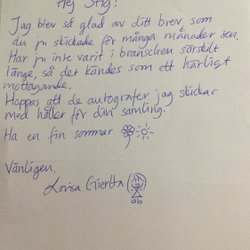 Hej Stig!
Jag blev så glad av ditt brev, som
du ju skickade för många månader sen.
Har ju inte varit i branschen särskilt
länge, så det kändes som ett härligt
mottagande.
Hoppas att de autografer jag skickar
med håller för din samling.
Ha en fin sommar
Vänligen,
Lovisa